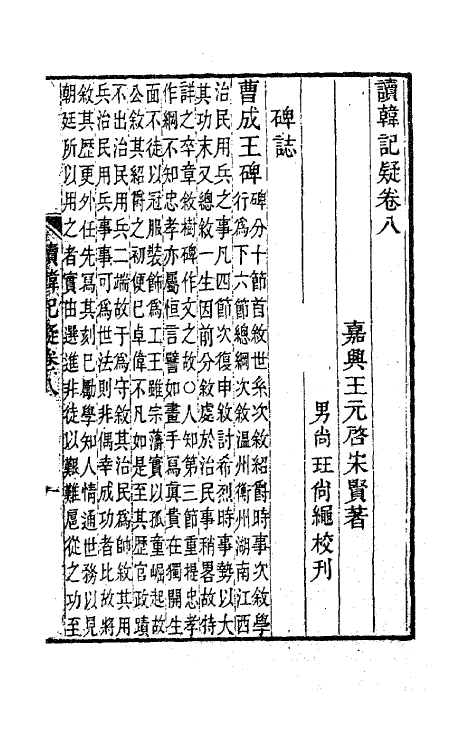 讀韓記疑卷八
嘉興王元啓宋賢著
男尚玨尚繩校刊
碑誌
曹成王碑 碑分十節首敘世系次敘紹爵時事次敘學
行爲下六節總綱次敘温州衡州湖南江西
治民用兵之事凡四節次復申敘討希烈時事勢以大
其功末又總敘一生因前分敘處於治民事稍畧故特
詳之卒章敘樹碑作文之故○人知第三節重提忠孝
作綱不知忠孝亦屬恒言譬如畫手寫眞貴在獨開生
面不徒以冠服裝飾爲工王雖宗藩實以孤童崛起故
公敘其紹爵之初便已卓偉不凡如是至其歷官政蹟
不出治民用兵二端故于爲守敘其治民爲師敘其用
兵治民用兵事事可爲世法則非偶幸成功者比故將
敘其歷更外任先寫其刻已勵學知人情通世務以見
朝廷所以用之者實由選進非徒以艱難扈從之功至
讀韓記疑卷八
一